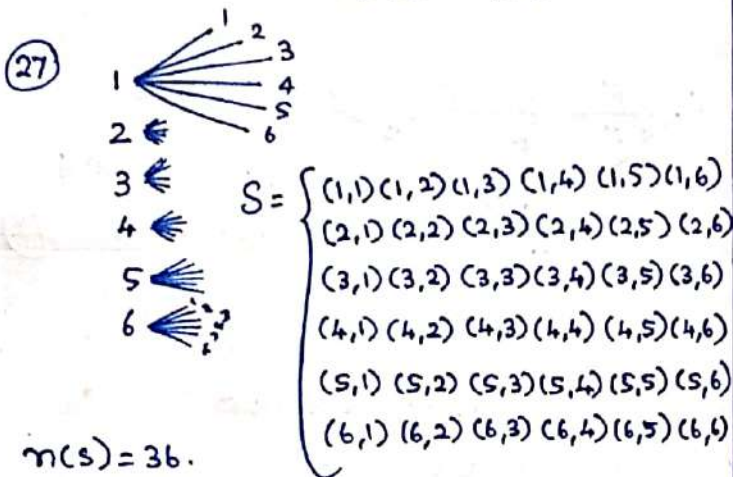 27
1 1
2
3
4
5
6
2
3
4
5
6
S = { (1,1) (1,2) (1,3) (1,4) (1,5) (1,6)
(2,1) (2,2) (2,3) (2,4) (2,5) (2,6)
(3,1) (3,2) (3,3) (3,4) (3,5) (3,6)
(4,1) (4,2) (4,3) (4,4) (4,5) (4,6)
(5,1) (5,2) (5,3) (5,4) (5,5) (5,6)
(6,1) (6,2) (6,3) (6,4) (6,5) (6,6)
n(s) = 36.